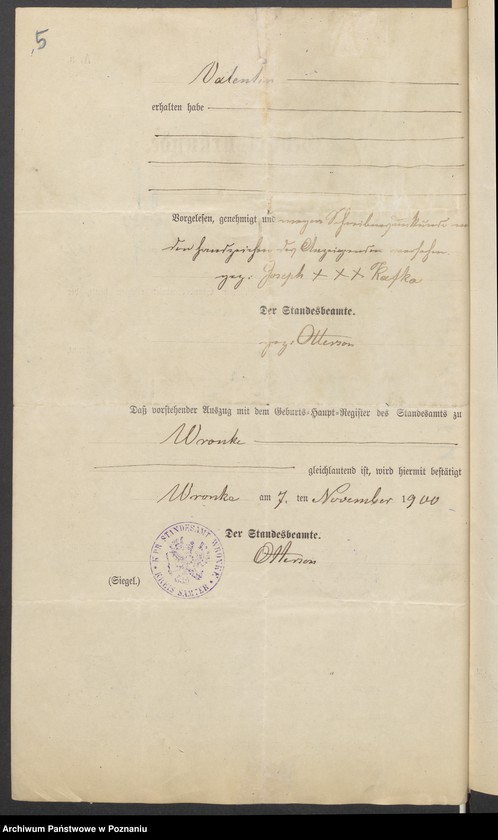 5
Valentin
erhalten habe
Vorgelesen, genehmigt und wegen Schreibensunkunde mit
den Handzeichen des Anzeigenden versehen.
gez: Joseph + + + Kafka
Der Standesbeamte.
gez: Otterson
Daß vorstehender Auszug mit dem Geburts-Haupt-Register des Standesamts zu
Wronke
gleichlautend ist, wird hiermit bestätigt
Wronke am 7. ten November 1900
Der Standesbeamte.
Otterson
KPR. STANDESAMT WRONKE * KREIS SAMTER *
(Siegel.)
Archiwum Państwowe w Poznaniu